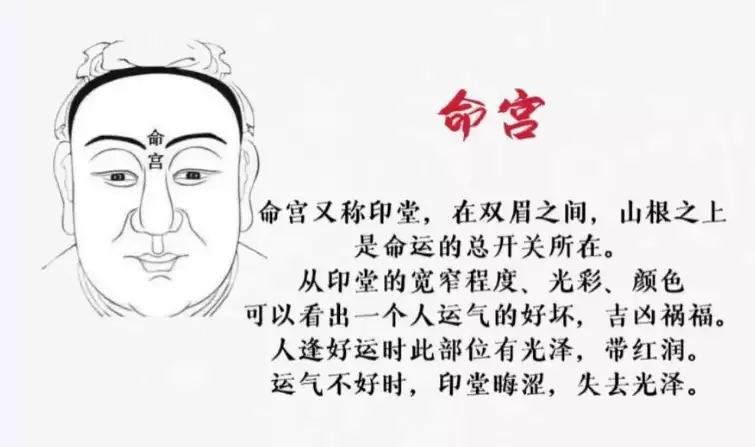 命宫
命
宫
命宫又称印堂，在双眉之间，山根之上
是命运的总开关所在。
从印堂的宽窄程度、光彩、颜色
可以看出一个人运气的好坏，吉凶祸福。
人逢好运时此部位有光泽，带红润。
运气不好时，印堂晦涩，失去光泽。